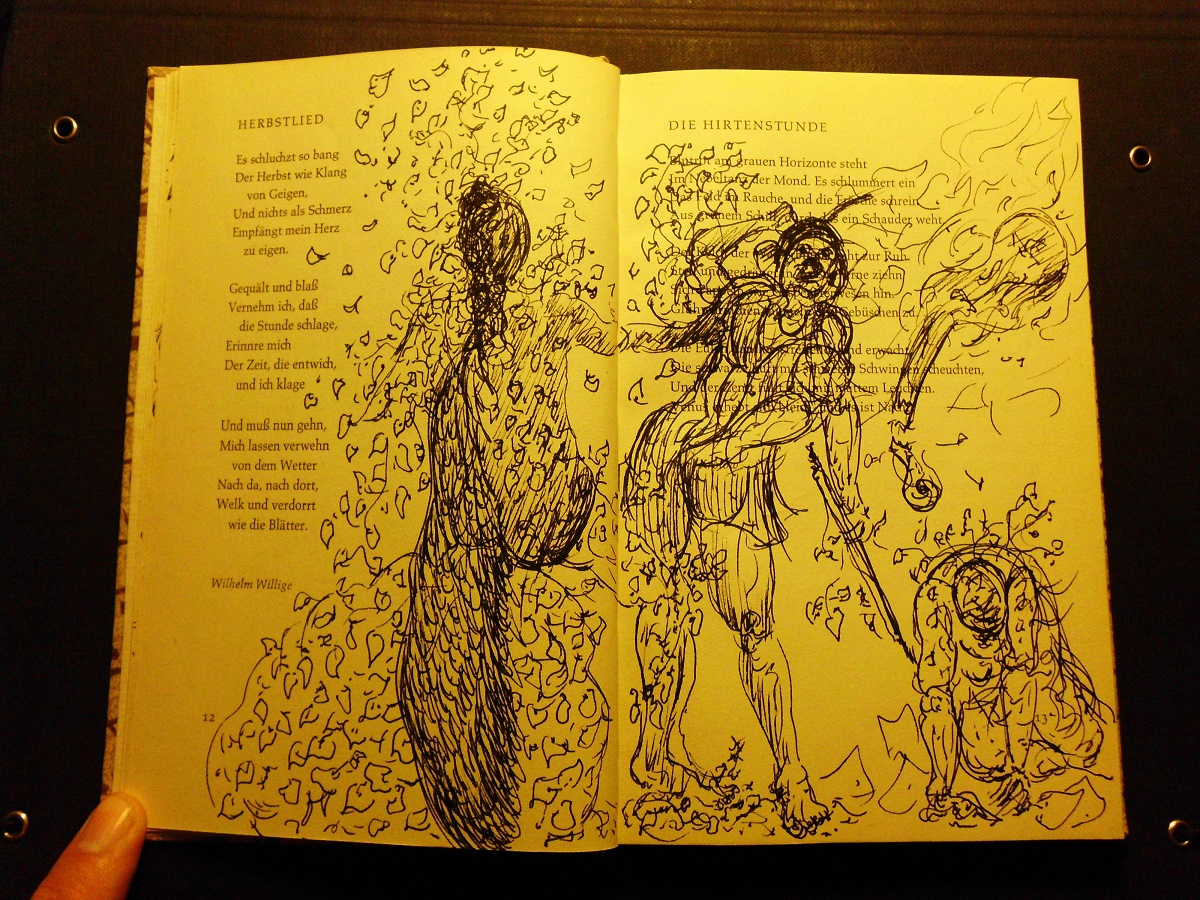 HERBSTLIED
Es schluchzt so bang
Der Herbst wie Klang
von Geigen,
Und nichts als Schmerz
Empfängt mein Herz
zu eigen.
Gequält und blaß
Vernehm ich, daß
die Stunde schlage,
Erinnre mich
Der Zeit, die entwich,
und ich klage
Und muß nun gehn,
Mich lassen verwehn
von dem Wetter
Nach da, nach dort,
Welk und verdorrt
wie die Blätter.
Wilhelm Willige
12
DIE HIRTENSTUNDE
Blutrot am grauen Horizonte steht
Im Nebeltanz der Mond. Es schlummert ein
Das Feld im Rauche, und die Frösche schrein
Aus grünem Schilf, durch das ein Schauder weht
der zur Ruh.
ziehn
hin.
Gebüschen zu.
Die und
Die schwarze Luft mit Schwingen scheuchten,
Und der mattem Leuchten.
Venus erhebt ist Nacht
13